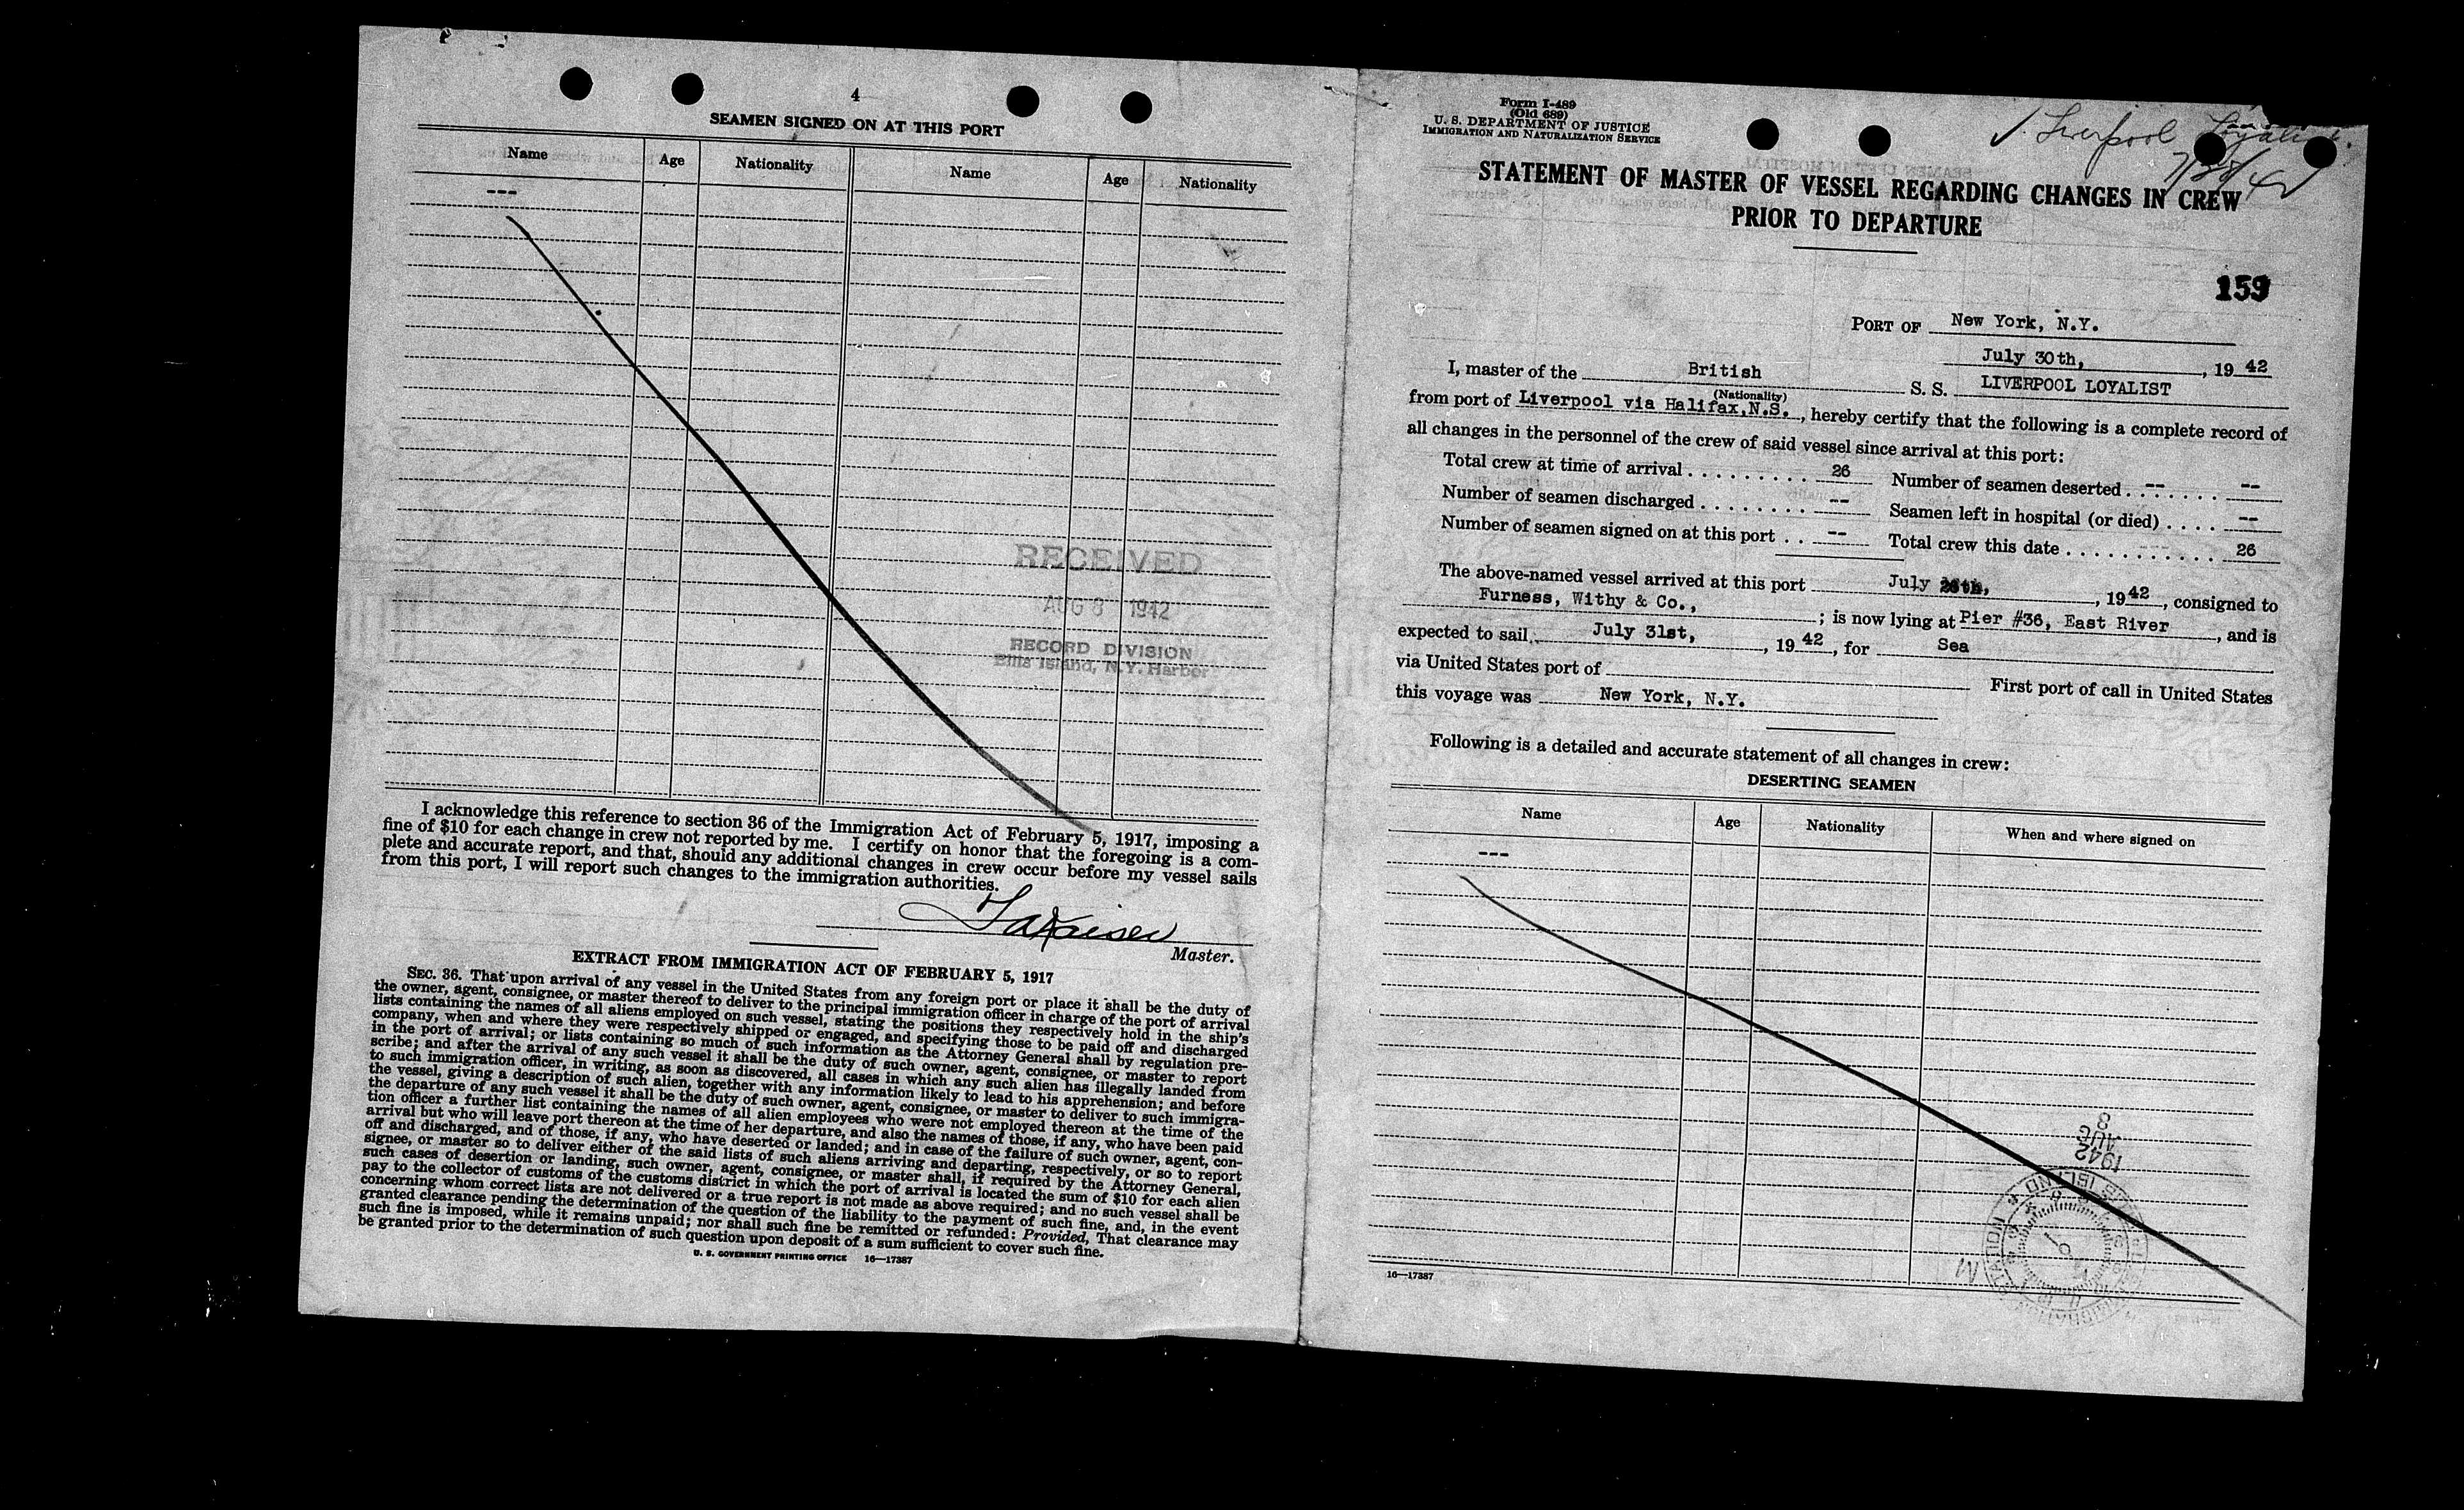 4
SEAMEN SIGNED ON AT THIS PORT
Name Age Nationality Name Age Nationality
---
RECEIVED
AUG 8 1942
RECORD DIVISION
Ellis Island, N.Y. Harbor
I acknowledge this reference to section 36 of the Immigration Act of February 5, 1917, imposing a
fine of $10 for each change in crew not reported by me. I certify on honor that the foregoing is a com-
plete and accurate report, and that, should any additional changes in crew occur before my vessel sails
from this port, I will report such changes to the immigration authorities.
Master.
EXTRACT FROM IMMIGRATION ACT OF FEBRUARY 5, 1917
SEC. 36. That upon arrival of any vessel in the United States from any foreign port or place it shall be the duty of
the owner, agent, consignee, or master thereof to deliver to the principal immigration officer in charge of the port of arrival
lists containing the names of all aliens employed on such vessel, stating the positions they respectively hold in the ship's
company, when and where they were respectively shipped or engaged, and specifying those to be paid off and discharged
in the port of arrival; or lists containing so much of such information as the Attorney General shall by regulation pre-
scribe; and after the arrival of any such vessel it shall be the duty of such owner, agent, consignee, or master to report
to such immigration officer, in writing, as soon as discovered, all cases in which any such alien has illegally landed from
the vessel, giving a description of such alien, together with any information likely to lead to his apprehension; and before
the departure of any such vessel it shall be the duty of such owner, agent, consignee, or master to deliver to such immigra-
tion officer a further list containing the names of all alien employees who were not employed thereon at the time of the
arrival but who will leave port thereon at the time of her departure, and also the names of those, if any, who have been paid
off and discharged, and of those, if any, who have deserted or landed; and in case of the failure of such owner, agent, con-
signee, or master so to deliver either of the said lists of such aliens arriving and departing, respectively, or so to report
such cases of desertion or landing, such owner, agent, consignee, or master shall, if required by the Attorney General,
pay to the collector of customs of the customs district in which the port of arrival is located the sum of $10 for each alien
concerning whom correct lists are not delivered or a true report is not made as above required; and no such vessel shall be
granted clearance pending the determination of the question of the liability to the payment of such fine, and, in the event
such fine is imposed, while it remains unpaid; nor shall such fine be remitted or refunded: Provided, That clearance may
be granted prior to the determination of such question upon deposit of a sum sufficient to cover such fine.
U. S. GOVERNMENT PRINTING OFFICE 16—17387
Form I-489
(Old 689)
U. S. DEPARTMENT OF JUSTICE
IMMIGRATION AND NATURALIZATION SERVICE
Liverpool Loyalist.
7/30/42
STATEMENT OF MASTER OF VESSEL REGARDING CHANGES IN CREW
PRIOR TO DEPARTURE
159
PORT OF New York, N.Y.
July 30th, , 19 42
I, master of the British S. S. LIVERPOOL LOYALIST
(Nationality)
from port of Liverpool via Halifax,N.S. , hereby certify that the following is a complete record of
all changes in the personnel of the crew of said vessel since arrival at this port:
Total crew at time of arrival . . . . . . . . . 26 Number of seamen deserted . . . . . . . -- --
Number of seamen discharged . . . . . . . . -- Seamen left in hospital (or died) . . . . --
Number of seamen signed on at this port . . -- Total crew this date . . . . . . . . . . . . 26
The above-named vessel arrived at this port July , 19 42 , consigned to
Furness, Withy & Co., ; is now lying at Pier #36, East River , and is
expected to sail July 31st, , 19 42 , for Sea
via United States port of First port of call in United States
this voyage was New York, N.Y.
Following is a detailed and accurate statement of all changes in crew:
DESERTING SEAMEN
Name Age Nationality When and where signed on
---
1942
AUG
8
16—17387